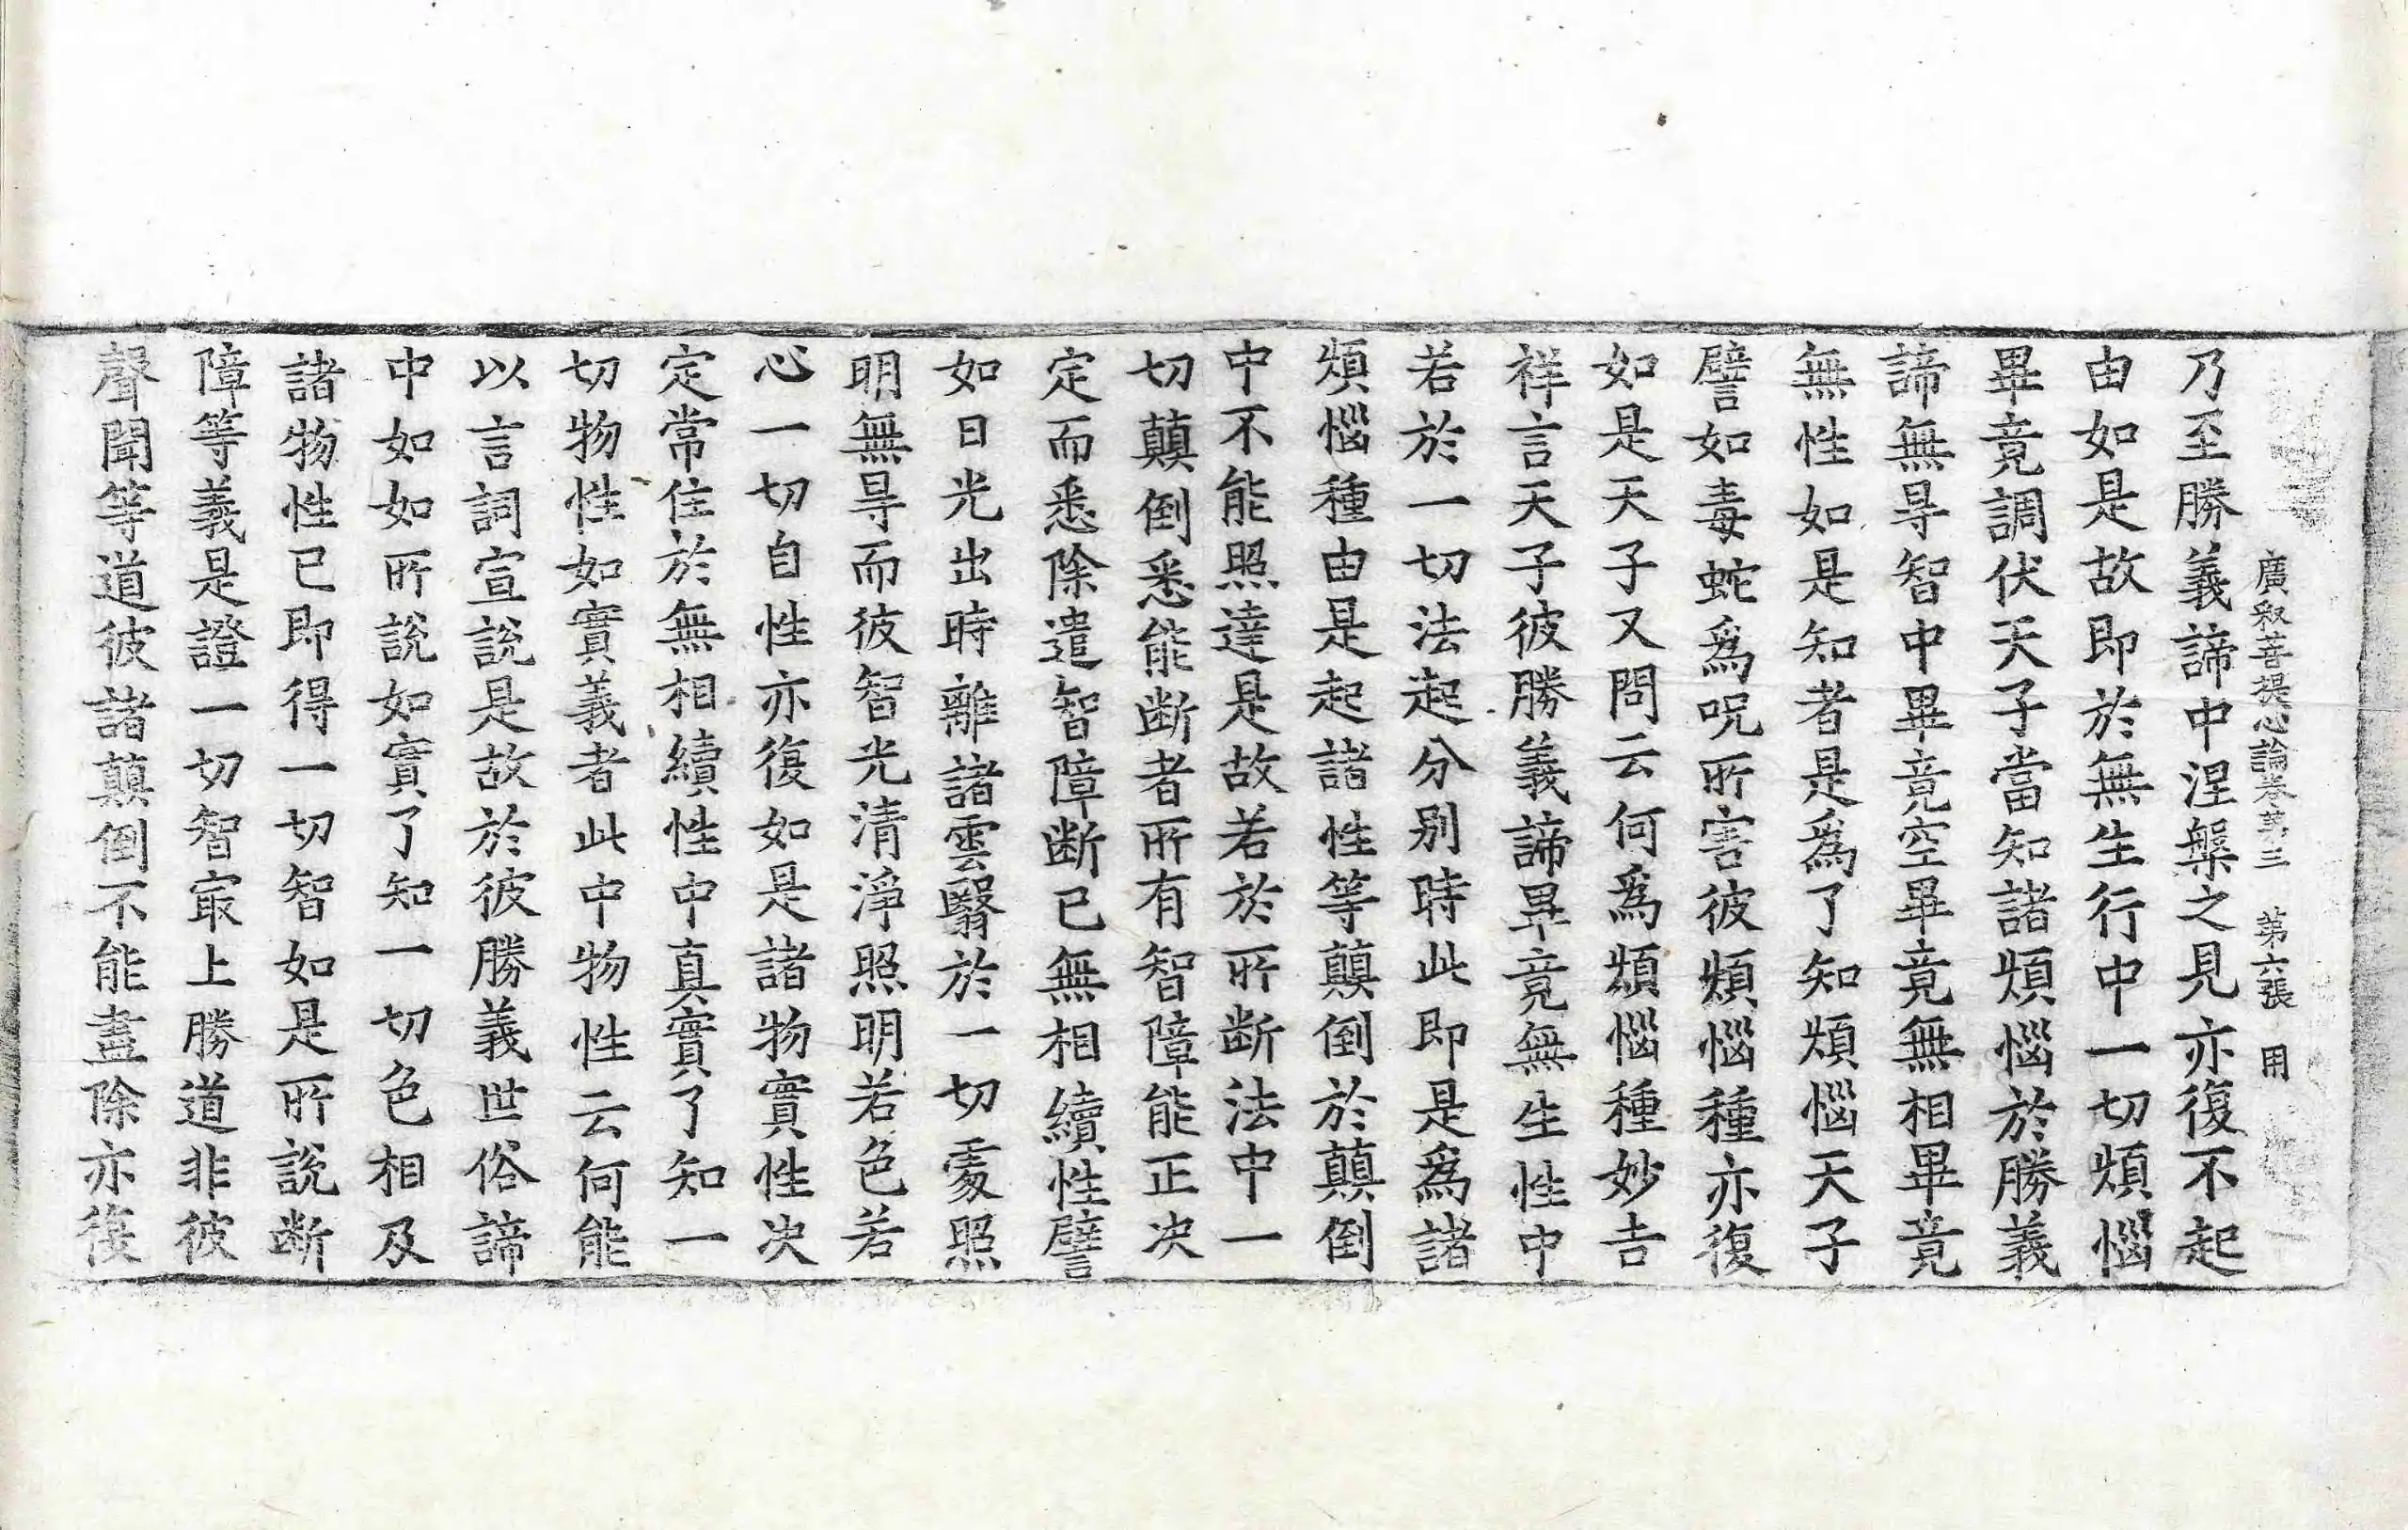 廣釈菩提心論卷第三　第六張　用
乃至勝義諦中涅槃之見亦復不起
由如是故即於無生行中一切煩惱
畢竟調伏天子當知諸煩惱於勝義
諦無㝵智中畢竟空畢竟無相畢竟
無性如是知者是爲了知煩惱天子
譬如毒蛇爲呪所害彼煩惱種亦復
如是天子又問云何爲煩惱種妙吉
祥言天子彼勝義諦畢竟無生性中
若於一切法起分別時此即是爲諸
煩惱種由是起諸性等顛倒於顛倒
中不能照達是故若於所断法中一
切顛倒悉能断者所有智障能正决
定而悉除遣智障断已無相續性譬
如日光出時離諸雲翳於一切處照
明無㝵而彼智光清淨照明若色若
心一切自性亦復如是諸物實性决
定常住於無相續性中真實了知一
切物性如實義者此中物性云何能
以言詞宣說是故於彼勝義世俗諦
中如如所說如實了知一切色相及
諸物性已即得一切智如是所說断
障等義是證一切智㝡上勝道非彼
聲聞等道彼諸顛倒不能盡除亦復